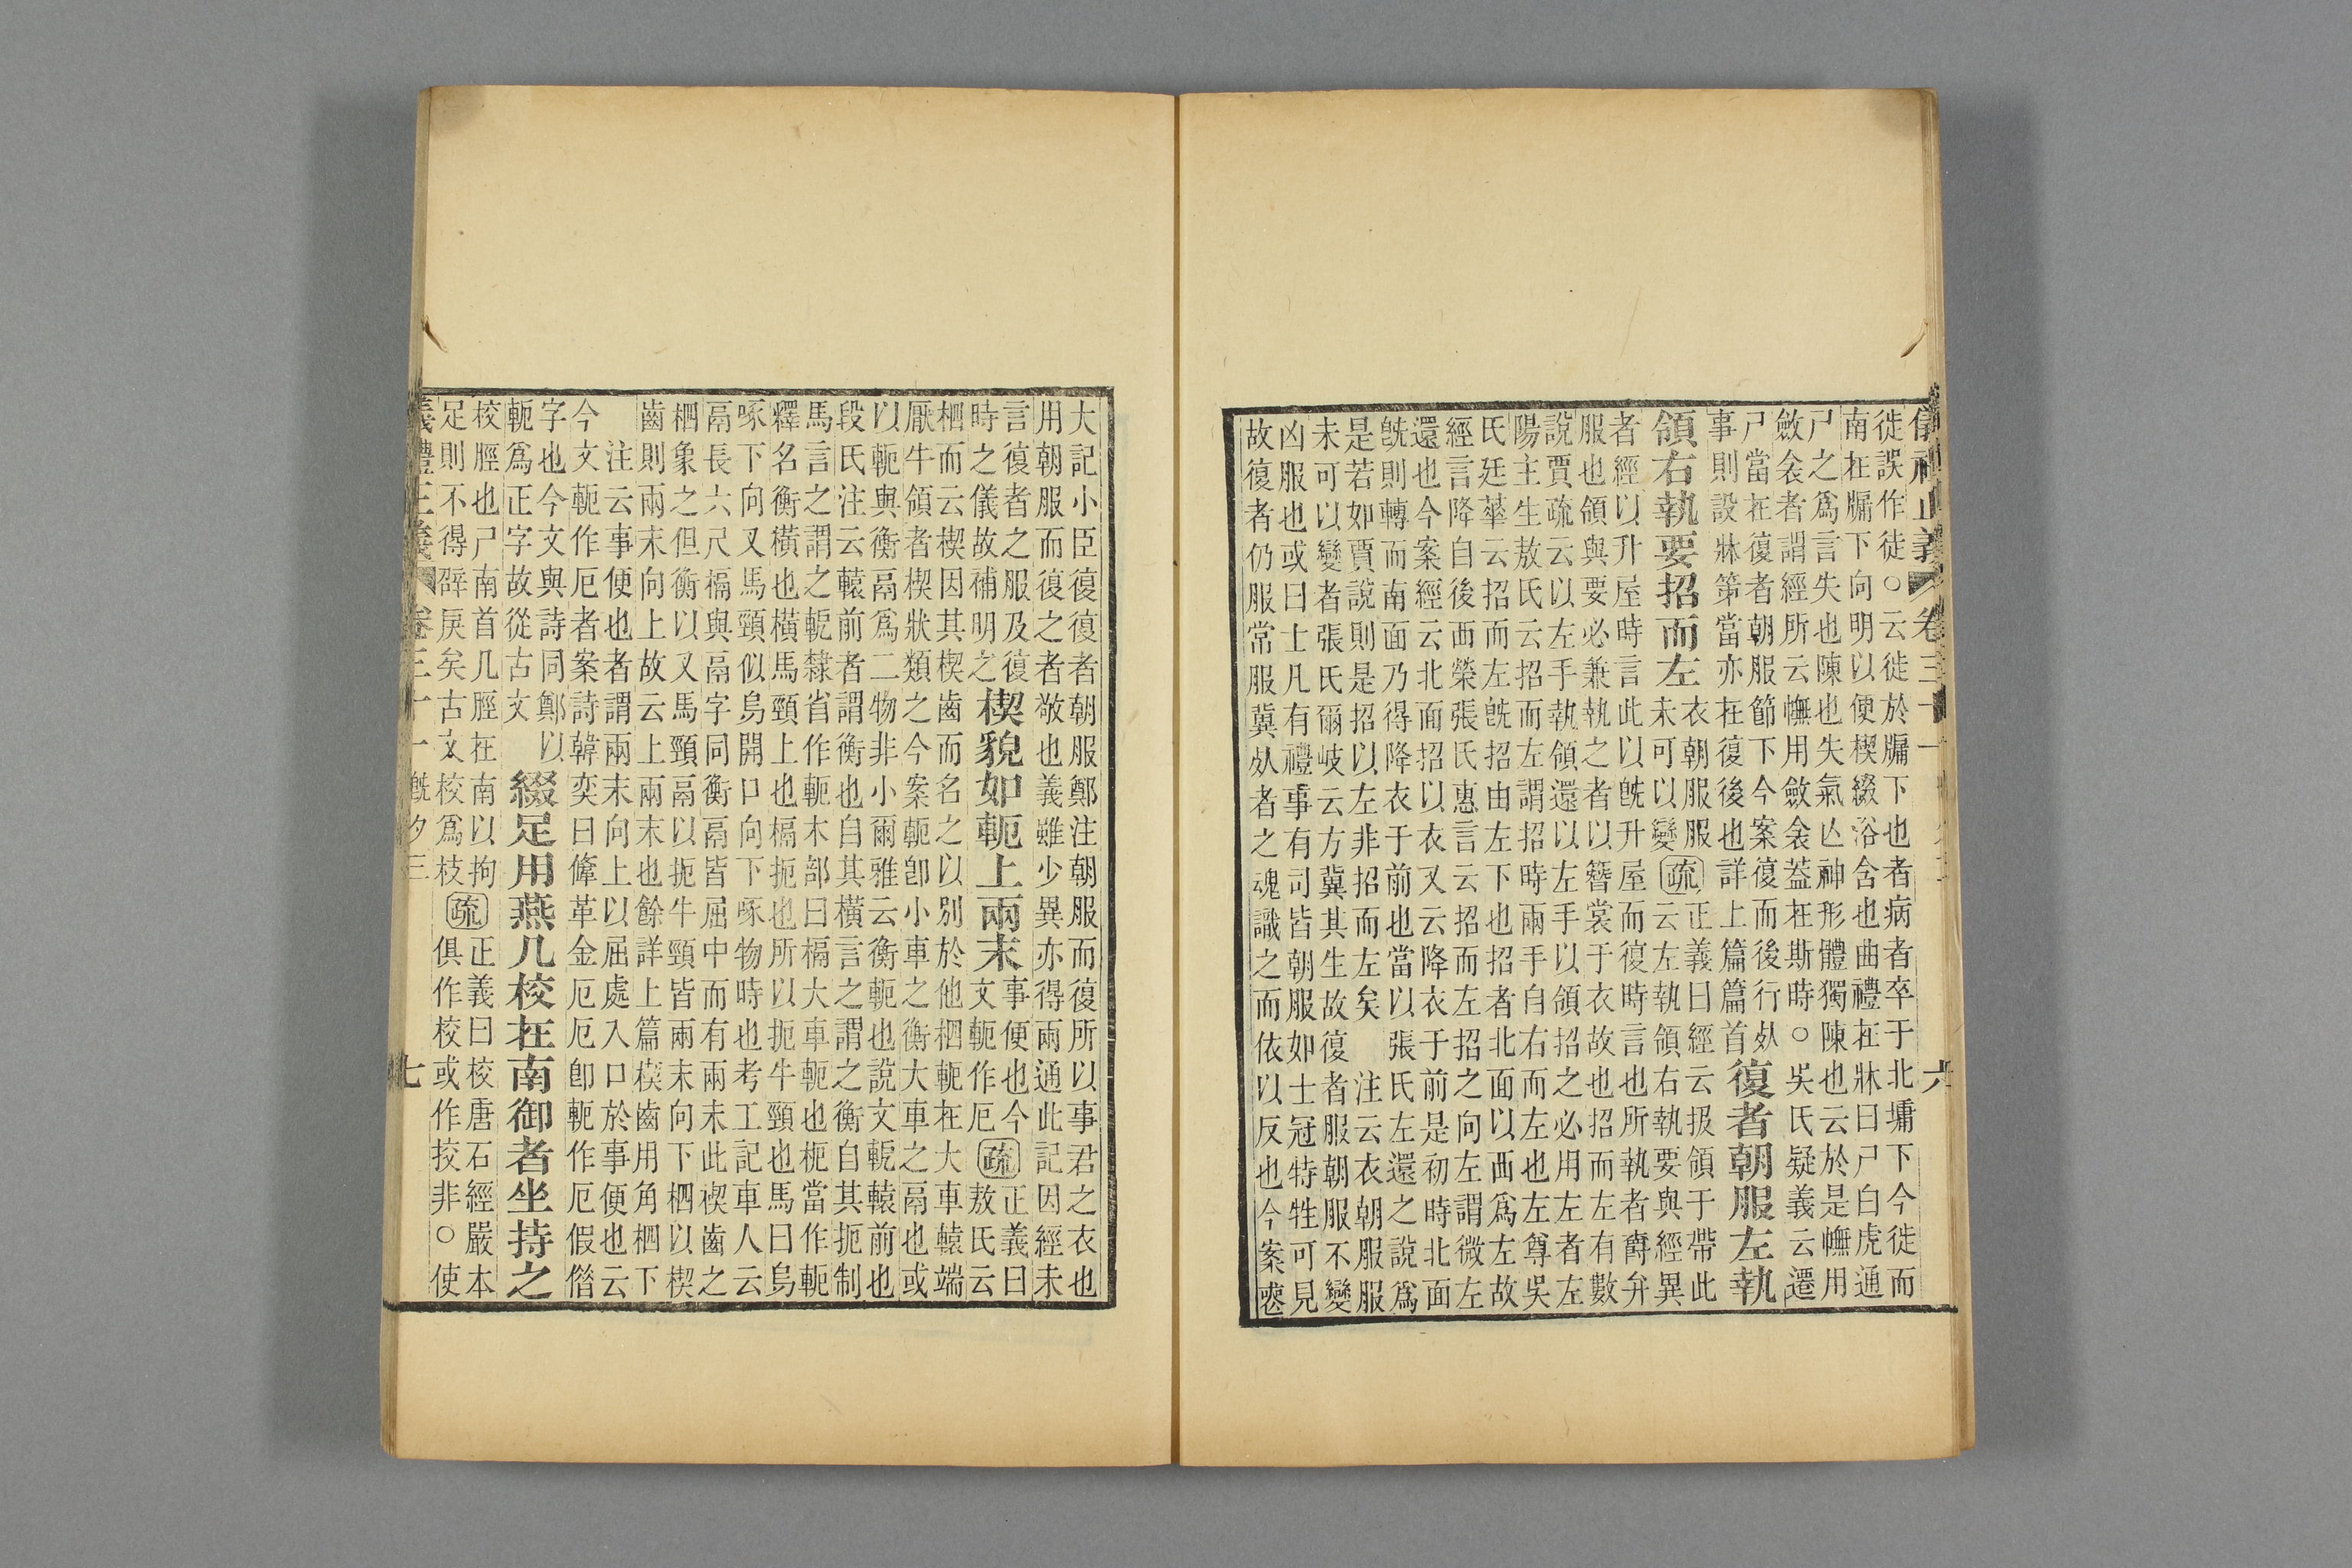 儀禮正義 卷三十一 六
徙誤作徒○云徙於牖下也者病者卒于北墉下今徙而
南在牖下向明以便楔綴浴含也曲禮在牀曰尸白虎通
尸之爲言失也陳也失氣亾神形體獨陳也云於是幠用
斂衾者謂經所云幠用斂衾葢在斯時○吳氏疑義云遷
尸當在復者朝服節下今案復而後行死
事則設牀笫當亦在復後也詳上篇篇首
復者朝服左執
領右執要招而左
衣朝服服
未可以變
疏
正義曰經云扱領于帶此
云左執領右執要與經異
者經以升屋時言此以旣升屋而復時言也所執者爵弁
服也領與要必兼執之者以簪裳于衣故也招而左有數
說賈疏云以左手執領還以左手以領招之必用左者左
陽主生敖氏云招而左謂招時兩手自右而左也左尊吳
氏廷華云招而左旣招由左下也招者北面以西爲左故
經言降自後西榮張氏惠言云招而左招之向左謂微左
還也今案經云北面招以衣又云降衣于前是初時北面
旣則轉而南面乃得降衣于前也當以張氏左還之說爲
是若如賈說則是招以左非招而左矣 注云衣朝服服
未可以變者張氏爾岐云方冀其生故復者服朝服不變
凶服也或曰士凡有禮事有司皆朝服如士冠特牲可見
故復者仍服常服冀死者之魂識之而依以反也今案喪
大記小臣復復者朝服鄭注朝服而復所以事君之衣也
用朝服而復之者敬也義雖少異亦得兩通此記因經未
言復者之服及復
時之儀故補明之
楔貌如軛上兩末
事便也今
文軛作厄
疏
正義曰
敖氏云
柶而云楔因其楔齒而名之以別於他柶軛在大車轅端
厭牛領者楔狀類之今案軛卽小車之衡大車之鬲也或
以軛與衡鬲爲二物非小爾雅云衡軛也說文軶轅前也
段氏注云轅前者謂衡也自其橫言之謂之衡自其扼制
馬言之謂之軶隸省作軛木部曰槅大車軛也枙當作軛
釋名衡橫也橫馬頸上也槅扼也所以扼牛頸也馬曰烏
啄下向又馬頸似烏開口向下啄物時也考工記車人云
鬲長六尺槅與鬲字同衡鬲皆屈中而有兩末此楔齒之
柶象之但衡以又馬頸鬲以扼牛頸皆兩末向下柶以楔
齒則兩末向上故云上兩末也餘詳上篇楔齒用角柶下
注云事便也者謂兩末向上以屈處入口於事便也云
今文軛作厄者案詩韓奕曰鞗革金厄厄卽軛作厄假借
字也今文與詩同鄭以
軛爲正字故從古文
綴足用燕几校在南御者坐持之
校脛也尸南首几脛在南以拘
足則不得辟戾矣古文校爲枝
疏
正義曰校唐石經嚴本
俱作校或作挍非○使
儀禮正義 卷三十一 旣夕三 七